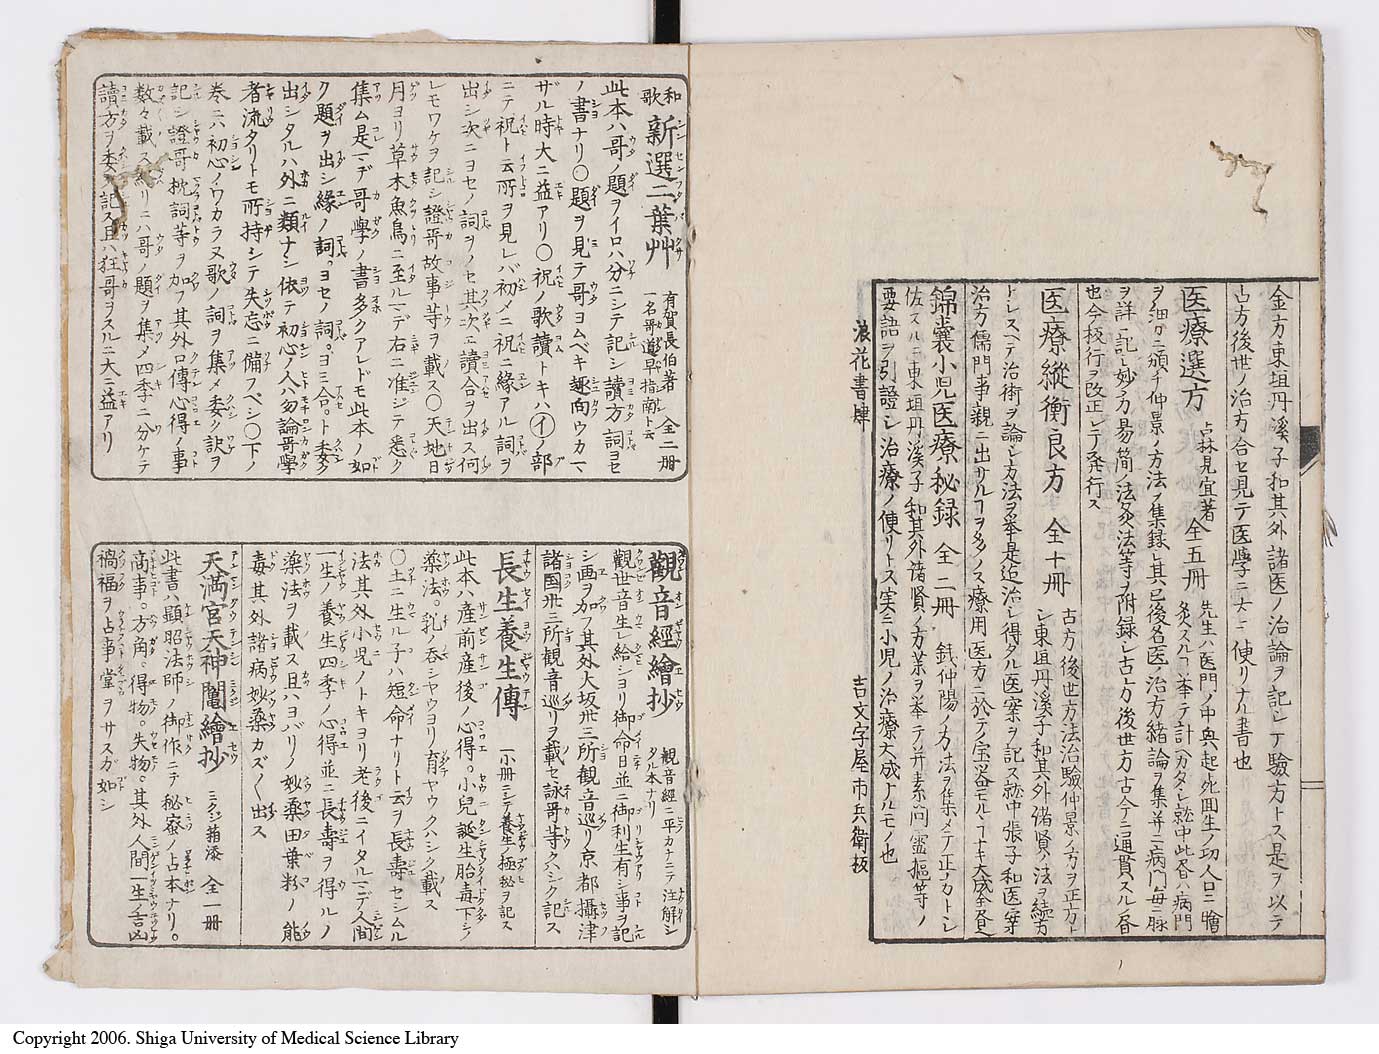 金方東垣丹溪子和其外諸医ノ治論ヲ記シ丁驗方トス是ヲ以テ
古方後世ノ治方合セ見テ医學ニ大ニ便リナル書也
医療選方 古林見宜著 全五冊
先生ハ医門ノ中興起死囬生ノ切人口ニ
ヲ詳ニ記し妙方易簡ノ法灸法等ヲ附録し古方後世方古今ニ通貫スル
也今板行ヲ改正シテ発行ス
医療縱衡良方 全十冊
古方後世方法治驗仲景ノ方ヲ正方ト
シ東垣丹溪子和其外諸賢ノ法ヲ
トレスベテ治術ヲ論シ方法ヲ挙是迄治シ得タル医案ヲ記ス
治方儒門事親ニ出
錦嚢小児医療秘録 全二冊
銭仲陽ノ方法ヲ集メテ正方トシ
佐スルニ東垣丹溪子和其外諸賢ノ方薬ヲ挙テ并素問霊樞等ノ
要語ヲ引證シ治療ノ便リトス実ニ小児ノ治療大成ナルモノ也
浪花書肆 吉文字屋市兵衛板
和歌 新選二葉艸
有賀長伯著 全二冊
一名哥道早指南ト云
此本ハ哥ノ題ヲイロハ分ニシテ記シ讀方詞ヨセ
ノ書ナリ〇題ヲ見テ哥ヨムベキ趣向ウカマ
ザル時大ニ益アリ〇祝ノ歌讀トキハ(イ)ノ部
ニテ祝ト云所ヲ見レバ初メニ祝ニ緣アル詞ヲ
出シ次ニヨセノ詞ヲノセ其次ニ讀合ヲ出ス何
レモワケヲ記シ證哥故事等ヲ載ス〇天地日
月ヨリ草木魚鳥ニ至ルマデ右ニ准シテ悉ク
集ム是マデ哥學ノ書多クアレドモ此本ノ如
ク題ヲ出シ緣ノ詞。ヨセノ詞。ヨミ合。ト委ク
出シタルハ外ニ類ナシ依テ初心ノ人ハ勿論哥學
者流タリトモ所持シテ失忘ニ備フベシ〇下ノ
巻ニハ初心ノワカラヌ歌ノ詞ヲ集メ委ク訣ヲ
記シ證哥枕詞等ヲ加フ其外口傳心得ノ事
数々載ス終リニハ哥ノ題ヲ集メ四季ニ分ケテ
讀方ヲ委ク記ス且ハ狂哥ヲスルニ大ニ益アリ
觀音經繪抄
觀音經ニ平カナニテ注解シ
タル本ナリ
觀世音生レ給シヨリ御命日並ニ御利生有シ事ヲ記
シ画ヲ加フ其外大坂卅三所觀音巡リ京都攝津
諸国卅三所觀音巡リヲ載セ詠哥等クハシク記ス
長生養生傳
一小冊ニシテ養生ノ極秘ヲ記ス
此本ハ産前産後ノ心得。小兒誕生胎毒下シ
藥法。乳ノ呑シヤウヨリ育ヤウクハシク載ス
〇土ニ生ルヽ子ハ短命ナリト云ヲ長壽セシムル
法其外小児ノトキヨリ老後ニイタルマデ人間
一生ノ養生四季ノ心得並ニ長壽ヲ得ルノ
藥法ヲ載ス且ハヨバリノ妙藥田葉粉ノ能
毒其外諸病妙藥カズ〱出ス
天満宮天神鬮繪抄
ミクジ箱添 全一冊
此書ハ顕昭法師ノ御作ニテ秘密ノ占本ナリ。
商事。方角。得物。失物。其外人間一生吉凶
禍福ヲ占事掌ヲサスガ如シ
Copyright 2006. Shiga University of Medical Science Library